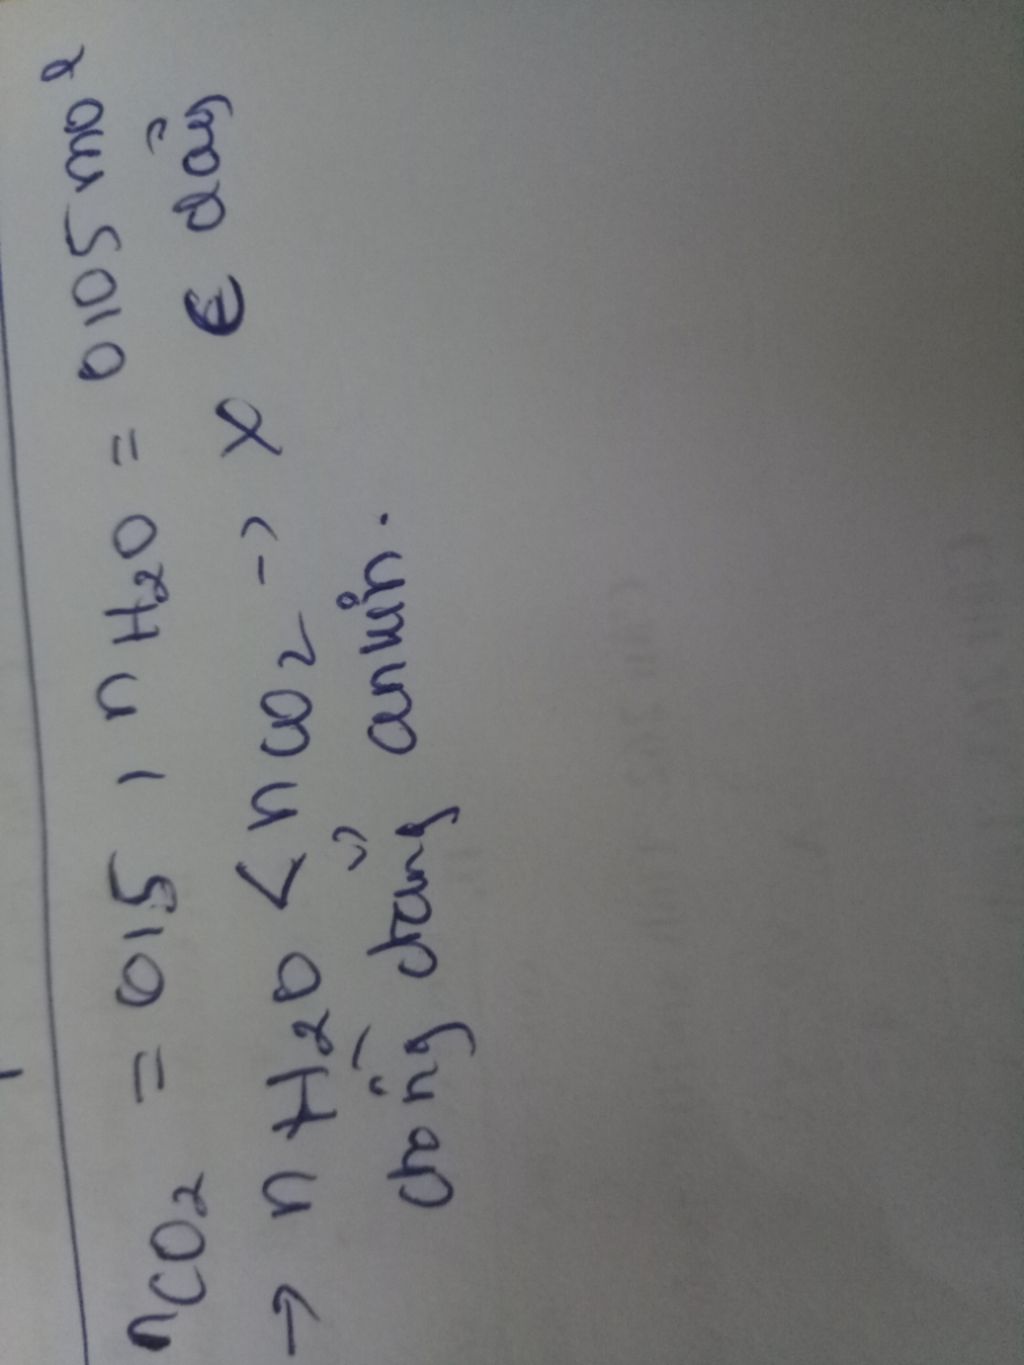 nCO2 = 0,5 , nH2O = 0,05 mol
→ nH2O < nCO2 → X ∈ dãy
đồng đẳng ankin.